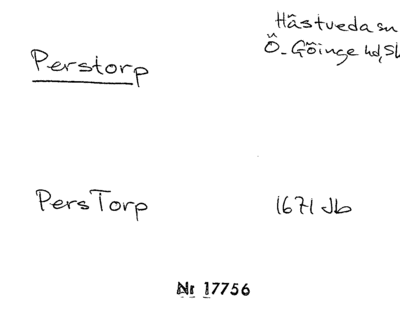 Hästveda sn
Ö. Göinge hd, Sk
Perstorp
PersTorp 1671 Jb
Nr 17756